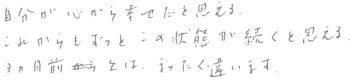 自分が心から幸せだと思える。
これからもずっとこの状態が続くと思える。
3ヵ月前とは、まったく違います。